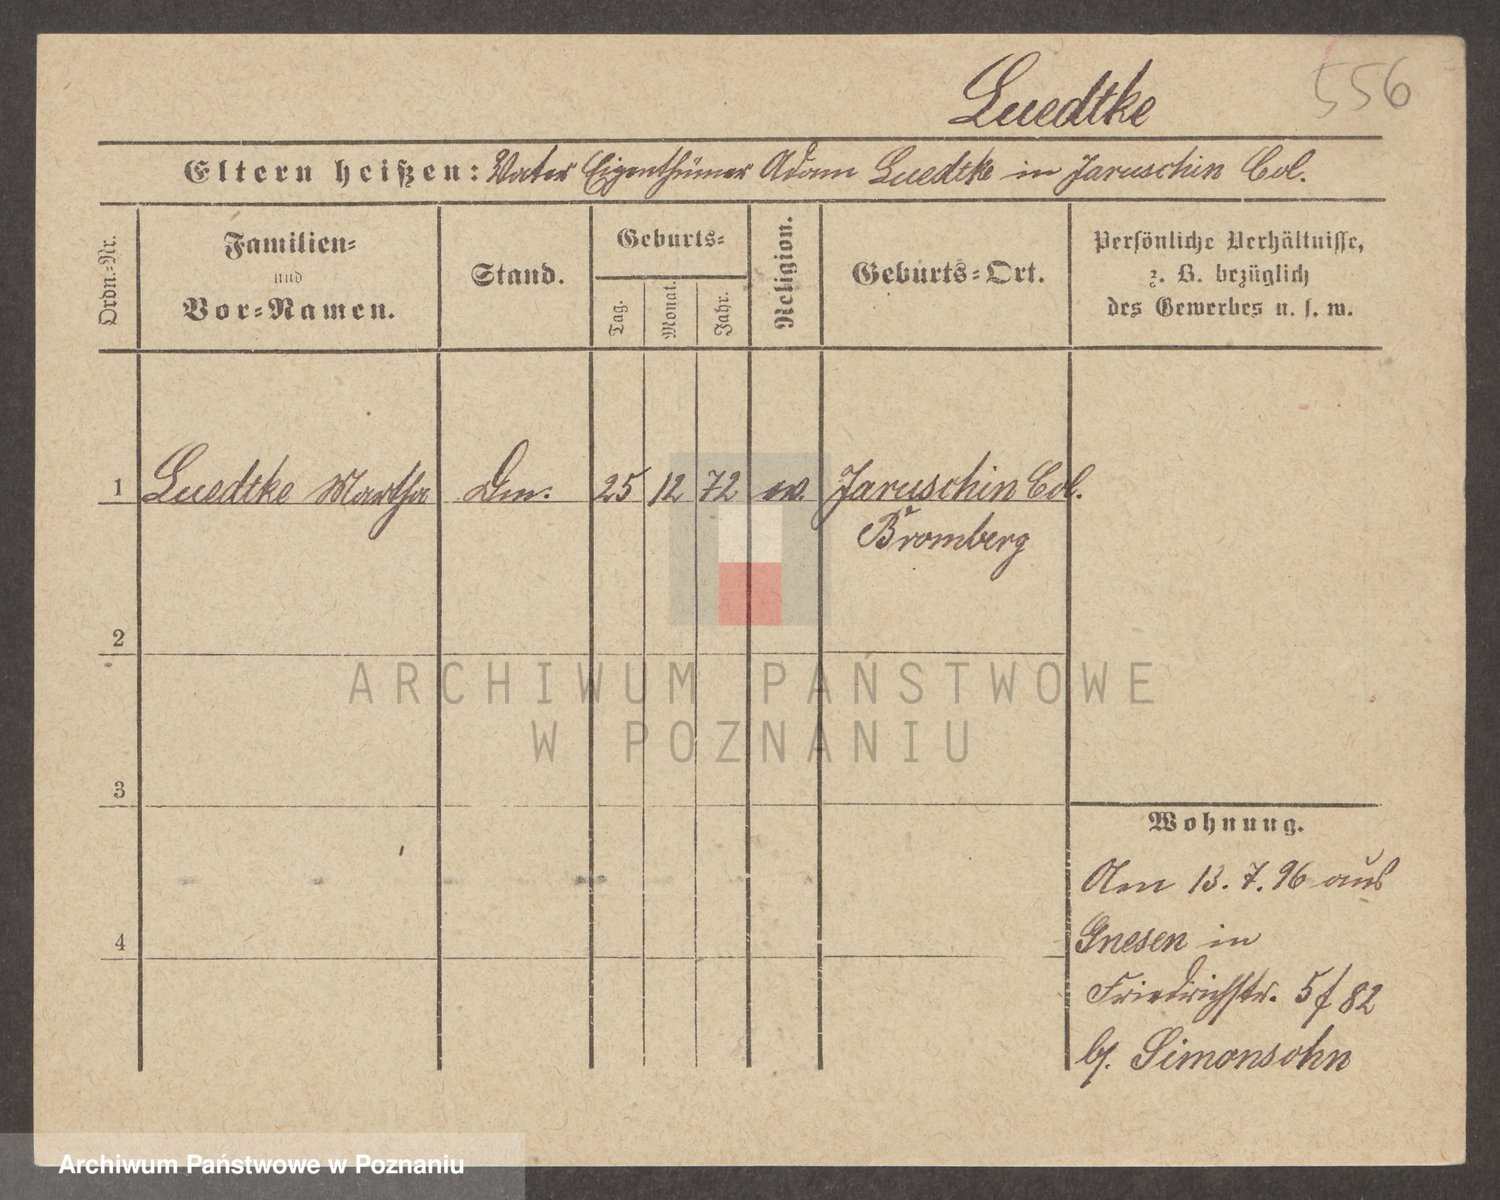 556
Luedtke
Eltern heißen: Vater Eigenthümer Adam Luedtke in Jaruschin Col.
Ordn.-Nr.
Familien-
und
Vor-Namen.
Stand.
Geburts-
Tag.
Monat.
Jahr.
Religion.
Geburts-Ort.
Persönliche Verhältnisse,
z. B. bezüglich
des Gewerbes u. s. w.
1 Luedtke Martha 25 12 72 ev. Jaruschin Col.
Bromberg
2
ARCHIWUM PAŃSTWOWE
W POZNANIU
3
Wohnung.
Am 13. 7. 96 aus
4
Gnesen in
Friedrichstr. 5 f 82
b/. Simonsohn
Archiwum Państwowe w Poznaniu